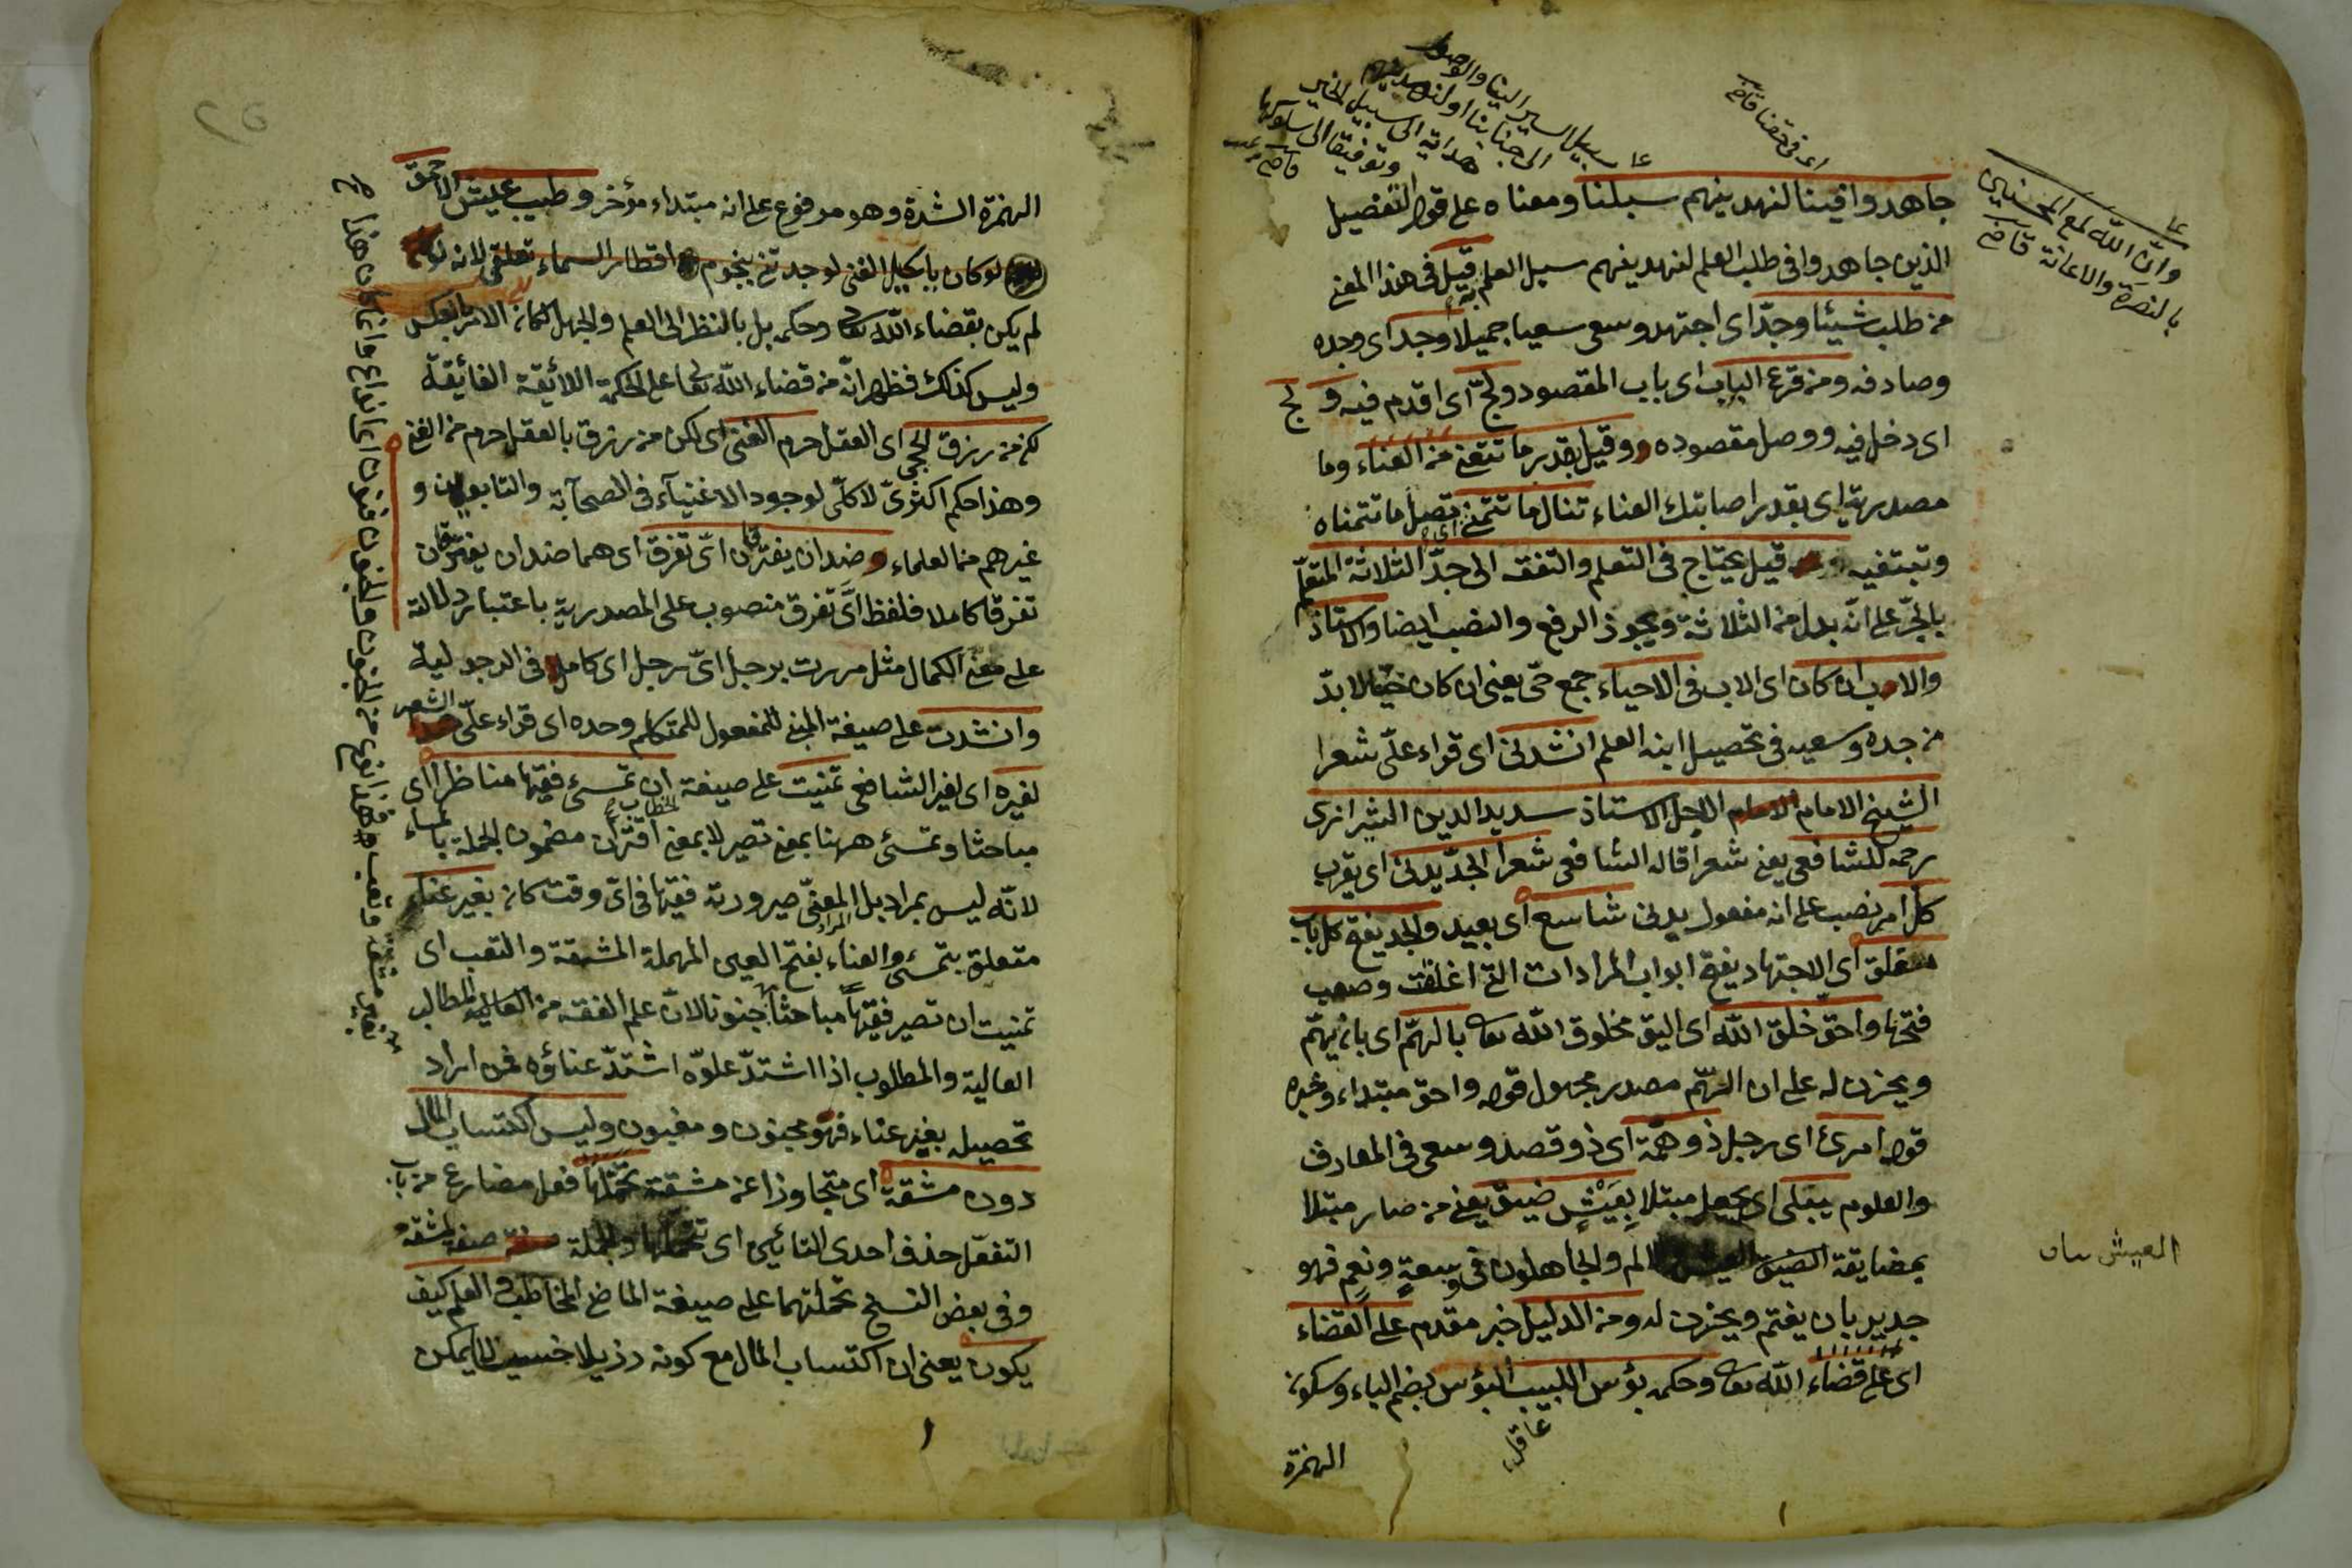 اى فى حقنا قاض
سبيل السير الينا والوصول
الى جنابنا او لنزيدنهم
هداية الى سبيل الخير
وتوفيقا الى سلوكها
قاض
وان الله لمع المحسنين
بالنصرة والاعانة قاض
جاهدوا فينا لنهدينهم سبلنا ومعناه على قول التفضيل
الذين جاهدوا فى طلب العلم لنهدينهم سبيل العلم قيل فى هذا المعنى
من طلب شيئا وجدّ اى اجتهد وسعى سعيا جميلا وجد اى وجده
وصادفه ومن قرع الباب اى باب المقصود ولجّ اى اقدم فيه ولج
اى دخل فيه ووصل مقصوده وقيل بقدر ما تتعنى من العناء وما
مصدرية اى بقدر اصابتك العناء تنال ما تتمنى اى تصل ما تتمناه
وتبتغيه قيل يحتاج فى التعلم والتفقه الى جدّ الثلاثة المتعلّم
بالجرّ على انه بدل من الثلاثة ويجوز الرفع والنصب ايضا والاستاذ
والاب ان كان اى الاب فى الاحياء جمع حىّ يعنى ان كان حيّا لا بدّ
من جده وسعيه فى تحصيل ابنه العلم انشدنى اى قراء علىّ شعرا
الشيخ الامام الاجل الاستاذ سديد الدين الشيرازى
رحمه للشافعى يعنى شعرا قاله الشافعى شعر الجدّ يدنى اى يقرب
كل امر نصب على انه مفعول يدنى شاسع اى بعيد والجد يفتح كل باب
مغلق اى الاجتهاد يفتح ابواب المرادات التى اغلقت وصعب
فتحها واحقّ خلق الله اى اليق مخلوق الله تعا بالهمّ اى بان يهمّ
ويحزن له على ان الهمّ مصدر مجهول قوله واحق مبتداء وخبره
قوله امرئ اى رجل ذو همّة اى ذو قصد وسعى فى المعارف
والعلوم يبلى اى يجعل مبتلا بِعَيْشٍ ضيق يعنى من صار مبتلا
بمضايقة والجاهلون فى وسعةٍ ونعمٍ فهو
جدير بان يغتم ويحزن له ومن الدليل خبر مقدم على القضاء
اى على قضاء الله تعا وحكمه بؤس اللبيب البؤس بضم الباء وسكون
عاقل
الهمزة
الهمزة الشدة وهو مرفوع على انه مبتداء مؤخر وطيب عيش الاحمق
لو كان بالحيل الغنى لوجدتنى بنجوم اقطار السماء تعلقى لانه لو
لم يكن بقضاء الله تعا وحكمه بل بالنظر الى العلم والجهل لكان الامر بالعكس
وليس كذلك فظهر انّه من قضاء الله تعا على الحكمة اللائقة الفائقة
لكن من رزق الحجى اى العقل حرم الغنى اى لكن من رزق بالعقل حرم من الغنى
وهذا حكم اكثرىّ لا كلّى لوجود الاغنياء فى الصحابة والتابعين و
غيرهم من العلماء وضدان يفترقان اىّ تفرق اى هما ضدان يفترقان
تفرقا كاملا فلفظ اىَّ تفرق منصوب على المصدرية باعتبار دلالته
على معنى الكمال مثل مررت برجل اىّ رجل اى كامل فى الرجولية
وانشدت على صيغة المبنى للمفعول للمتكلم وحده اى قراء علىّ الشعر
لغيره اى لغير الشافعى تمنيت على صيغة الخطاب ان تمسئ فقيها مناظرا اى
مباحثا وتمسئ ههنا بمعنى تصير لا بمعنى اقتران مضمون الجملة بالمساء
لانّه ليس بمراد بل المعنى المراد صيرورته فقيها فى اىّ وقت كان بغير عناء
متعلق بتمسئ والعناء بفتح العين المهملة المشقة والتعب اى
تمنيت ان تصير فقيهاً مباحثا جنونا لانّ علم الفقه من المطالب
العالية والمطلوب اذا اشتدّ علوّه اشتدّ عناؤه فمن اراد
تحصيله بغير عناء فهو مجنون ومغبون وليس اكتساب المال
دون مشقة اى متجاوزا عن مشقة تحمّلها فعل مضارع من باب
التفعّل حذف احدى التائين اى تتحملها والجملة صفة لمشقة
وفى بعض النسخ تحملتهما على صيغة الماضى المخاطب والعلم كيف
يكون يعنى ان اكتساب المال مع كونه رذيلا خسيسا لا يمكن